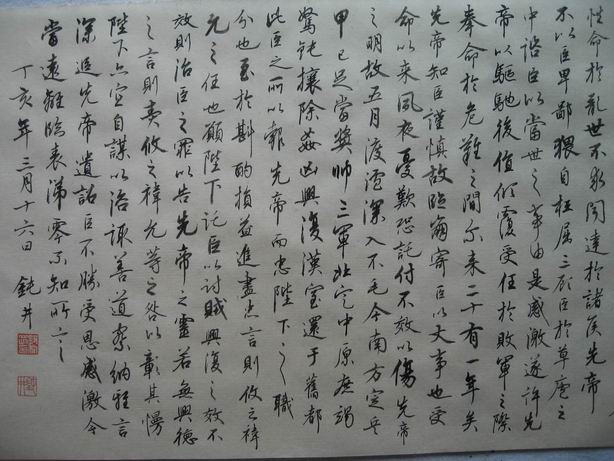 性命於亂世不求聞達於諸侯先帝
不以臣卑鄙猥自枉屈三顧臣於草廬之
中諮臣以當世之事由是感激遂許先
帝以驅馳後值傾覆受任於敗軍之際
奉命於危難之間尔來二十有一年矣
先帝知臣謹慎故臨崩寄臣以大事也受
命以來夙夜憂歎恐託付不效以傷先帝
之明故五月渡瀘深入不毛今南方定兵
甲已足當獎帅三軍北定中原庶竭
駑钝攘除姦凶興復漢室還于舊都
此臣之所以報先帝而忠陛下之職
分也至於斟酌損益進盡忠言則攸之禕
允之任也願陛下託臣以討賊興復之效不
效則治臣之罪以告先帝之靈若無興德
之言則責攸之禕允等之咎以彰其慢
陛下亦宜自謀以咨諏善道察納雅言
深追先帝遺詔臣不勝受恩感激今
當遠離臨表涕零不知所言
丁亥年三月十六日